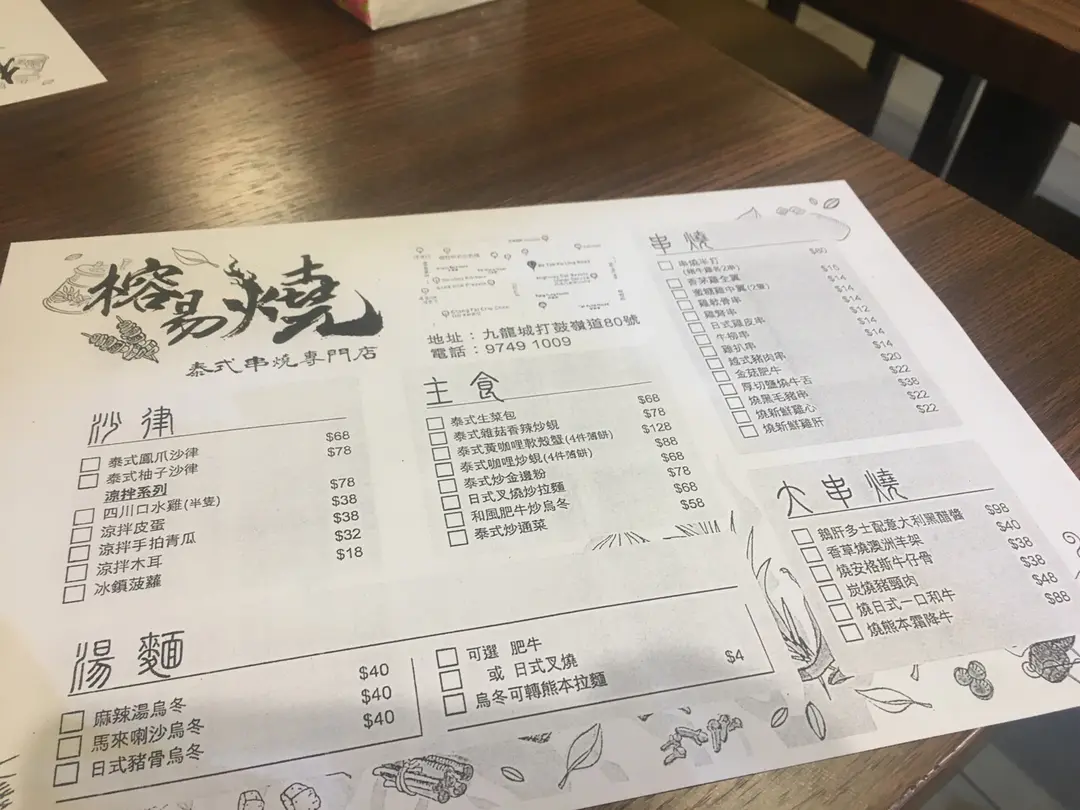 榕易燒
泰式串燒專門店
地址：九龍城打鼓嶺道80號
電話：9749 1009
沙律
泰式鳳爪沙律 $68
泰式柚子沙律 $78
涼拌系列
四川口水雞(半隻) $78
涼拌皮蛋 $38
涼拌手拍青瓜 $38
涼拌木耳 $32
冰鎮菠蘿 $18
主食
泰式生菜包 $68
泰式雜菇香辣炒蜆 $78
泰式黃咖哩軟殼蟹(4件薄餅) $128
泰式咖哩炒蜆(4件薄餅) $88
泰式炒金邊粉 $68
日式叉燒炒拉麵 $78
和風肥牛炒烏冬 $68
泰式炒通菜 $58
串燒
串燒半打 $80
香茅雞全翼 $15
蜜糖雞中翼(2隻) $14
雞軟骨串 $14
雞腎串 $12
日式雞皮串 $14
牛柳串 $14
雞扒串 $14
越式豬肉串 $14
金菇肥牛 $20
厚切鹽燒牛舌 $22
燒黑毛豬串 $38
燒新鮮雞心 $22
燒新鮮雞肝 $22
大串燒
鵝肝多士配意大利黑醋醬 $98
香草燒澳洲羊架 $40
燒安格斯牛仔骨 $38
炭燒豬頸肉 $38
燒日式一口和牛 $48
燒熊本霜降牛 $88
湯麵
麻辣湯烏冬 $40
馬來喇沙烏冬 $40
日式豬骨烏冬 $40
可選 肥牛
或 日式叉燒
烏冬可轉熊本拉麵 $4